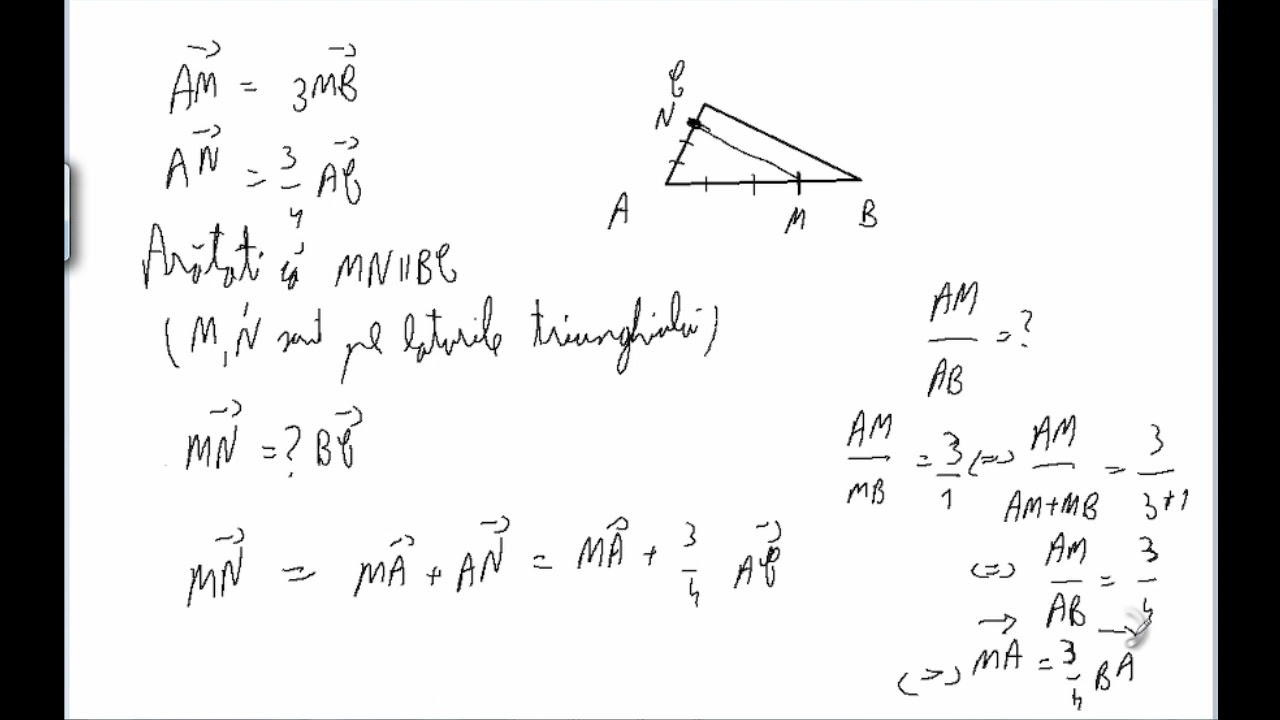 AM = 3MB
AN = 3/4 AC
Arătați că MN || BC
(M, N sunt pe laturile triunghiului)
MN = ? BC
MN = MA + AN = MA + 3/4 AC
C
N
A
M
B
AM/AB = ?
AM/MB = 3/1 (=) AM/AM+MB = 3/3+1
(=) AM/AB = 3/4
(=) MA = 3/4 BA